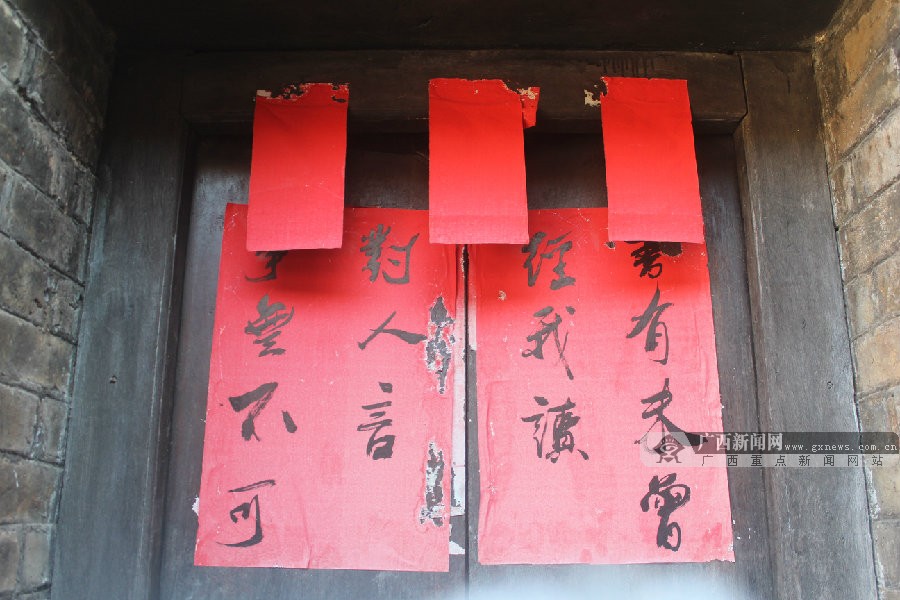 書有未曾
經我讀
事無不可
對人言
广西新闻网
www.gxnews.com.cn
广西重点新闻网站